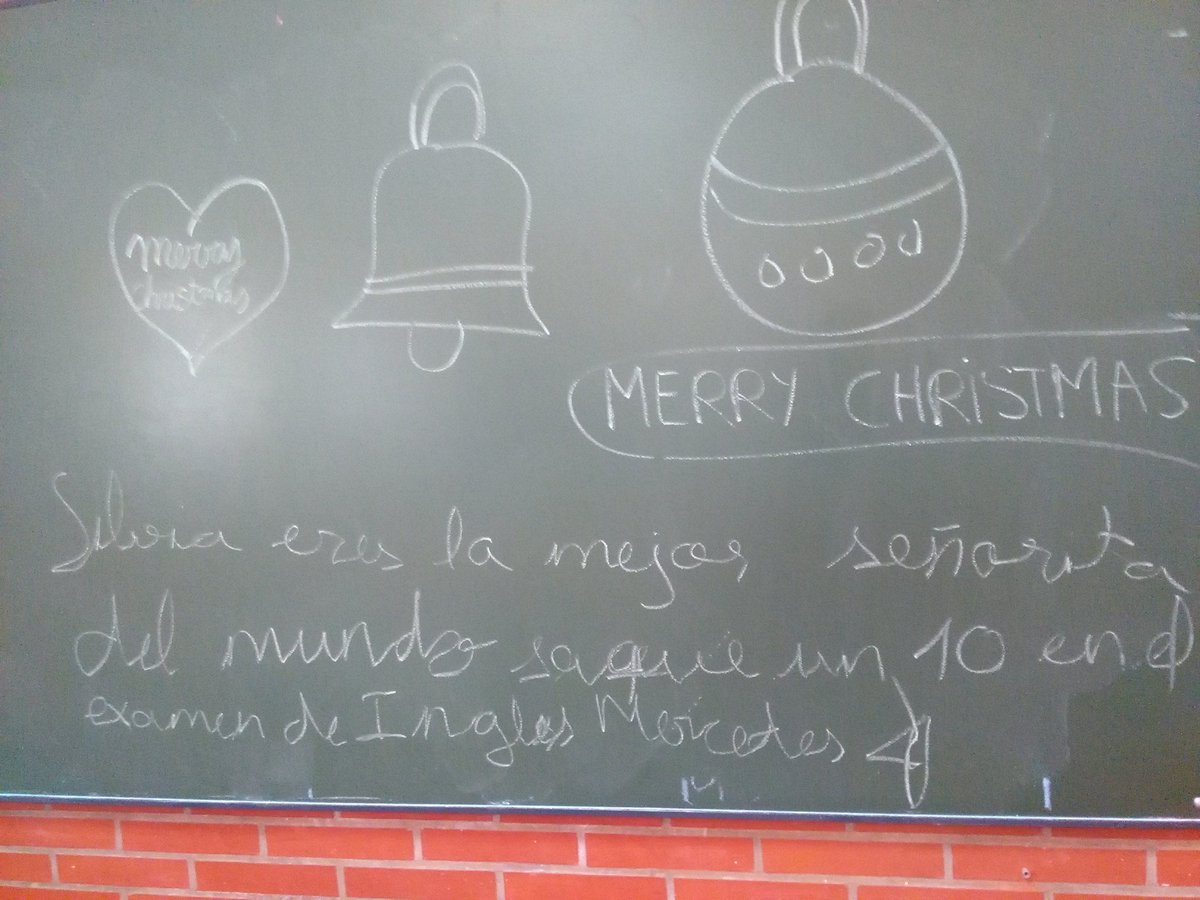 merry
christmas
MERRY CHRiSTMAS
Silvia eres la mejor señorita
del mundo saque un 10 en el
examen de Ingles Mercedes